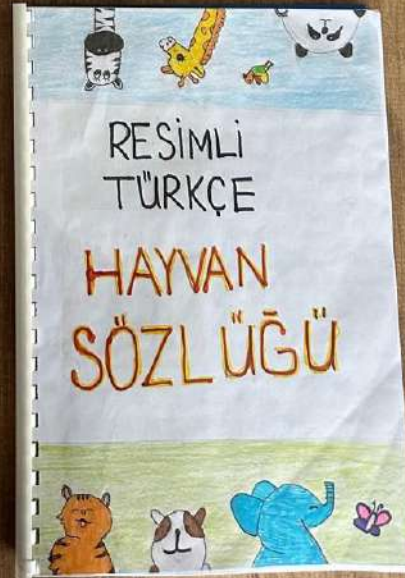 RESİMLİ
TÜRKÇE
HAYVAN
SÖZLÜĞÜ